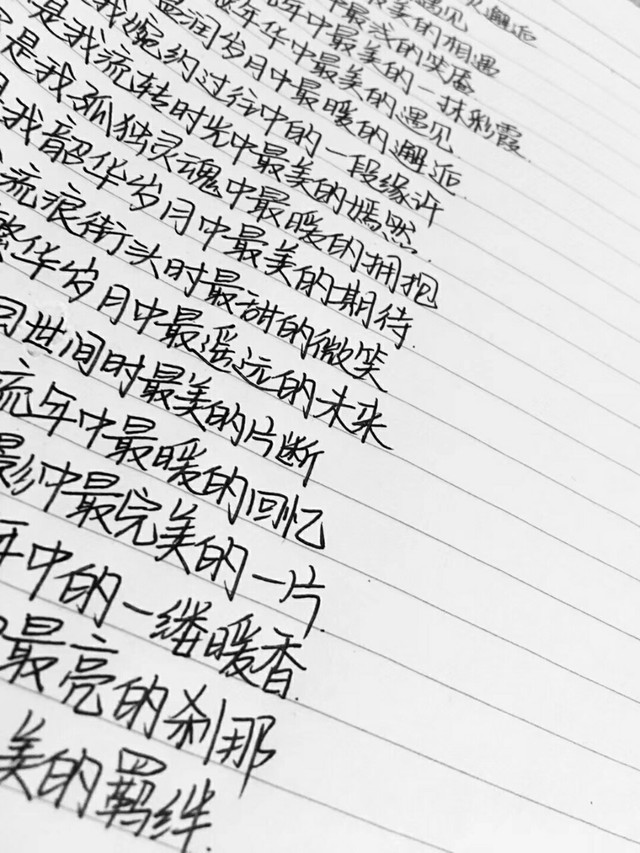 邂逅
遇见
最美的相遇
中最浅的笑靥
年中最美的一抹彩霞
年华中最美的遇见
温润岁月中最暖的邂逅
我婉约过往中的一段缘许
是我流转时光中最美的嫣然
是我孤独灵魂中最暖的拥抱
我韶华岁月中最美的期待
流浪街头时最甜的微笑
繁华岁月中最遥远的未来
世间时最美的片断
流年中最暖的回忆
影中最完美的一片
年中的一缕暖香
最亮的刹那
美的羁绊